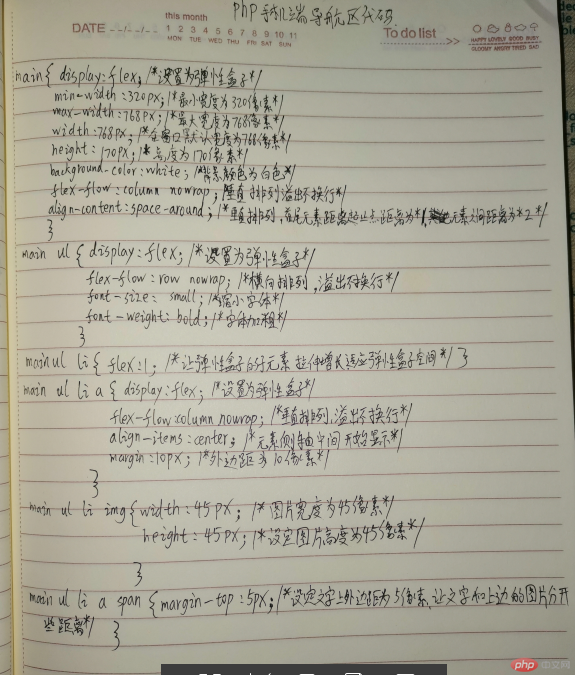 php手机端导航区代码
this month
DATE
1 2 3 4 5 6 7 8 9 10 11
MON TUE WED THU FRI SAT SUN
To do list
>>
HAPPY LOVELY GOOD BUSY
GLOOMY ANGRY TIRED SAD
main{ display:flex; /*设置为弹性盒子*/
min-width:320px; /*最小宽度为320像素*/
max-width:768px; /*最大宽度为768像素*/
width:768px; /*全窗口默认宽度为768像素*/
height:170px; /*高度为170像素*/
background-color:white; /*背景颜色为白色*/
flex-flow:column nowrap; /*垂直排列溢出不换行*/
align-content:space-around; /*垂直排列,首尾元素距离起止点距离为*1,元素之间距离为*2*/
}
main ul{ display:flex; /*设置为弹性盒子*/
flex-flow:row nowrap; /*横向排列,溢出不换行*/
font-size: small; /*缩小字体*/
font-weight: bold; /*字体加粗*/
}
main ul li{ flex:1; /*让弹性盒子的子元素拉伸增长适应弹性盒子空间*/ }
main ul li a{ display:flex; /*设置为弹性盒*/
flex-flow:column nowrap; /*垂直排列,溢出不换行*/
align-items:center; /*元素侧轴中间开始显示*/
margin:10px; /*外边距为10像素*/
}
main ul li img{width:45px; /*图片宽度为45像素*/
height:45px; /*设定图片高度为45像素*/
}
main ul li a span{margin-top:5px; /*设定文字上外边距为5像素,让文字和上边的图片分开
些距离*/ }
php 中文网